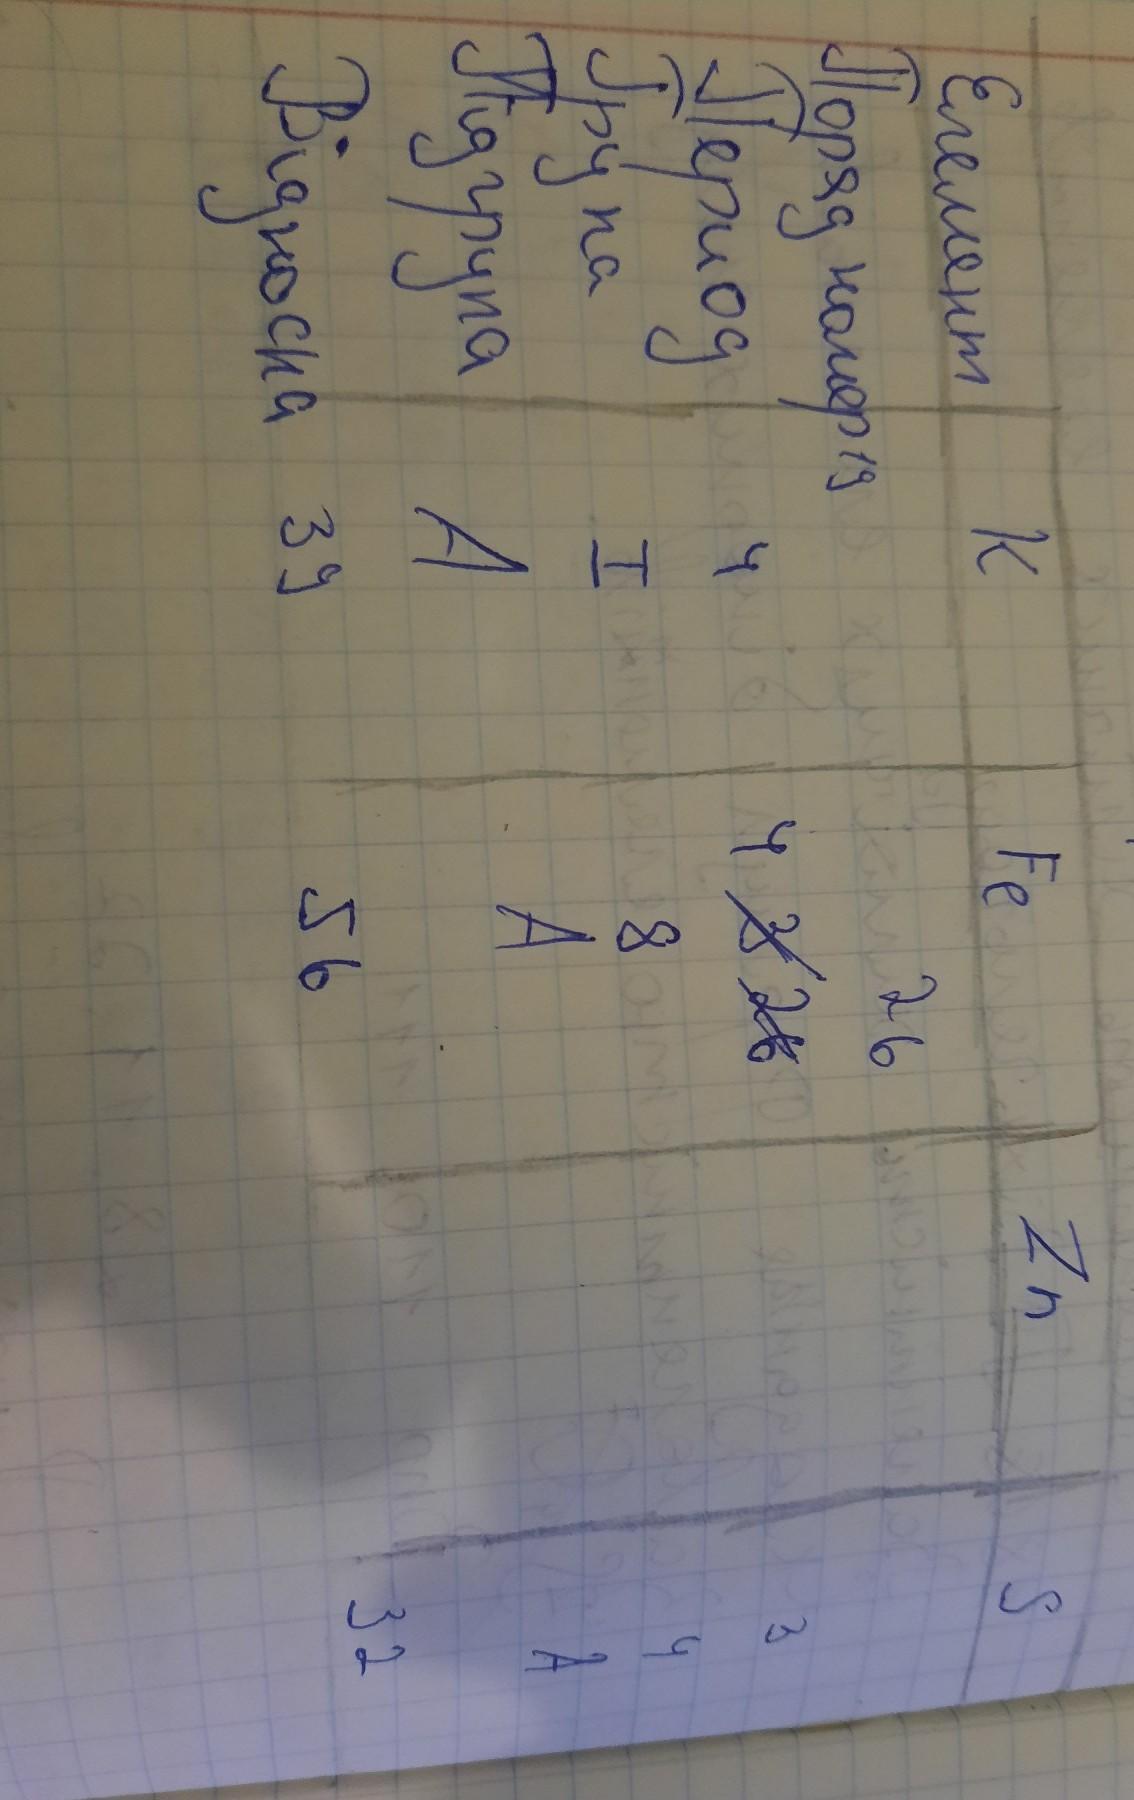 Елемент K Fe Zn S
Поряд номер 19 26
Період 4 4 3
Група I 8 4
Підгрупа A A A
Відносна 39 56 32